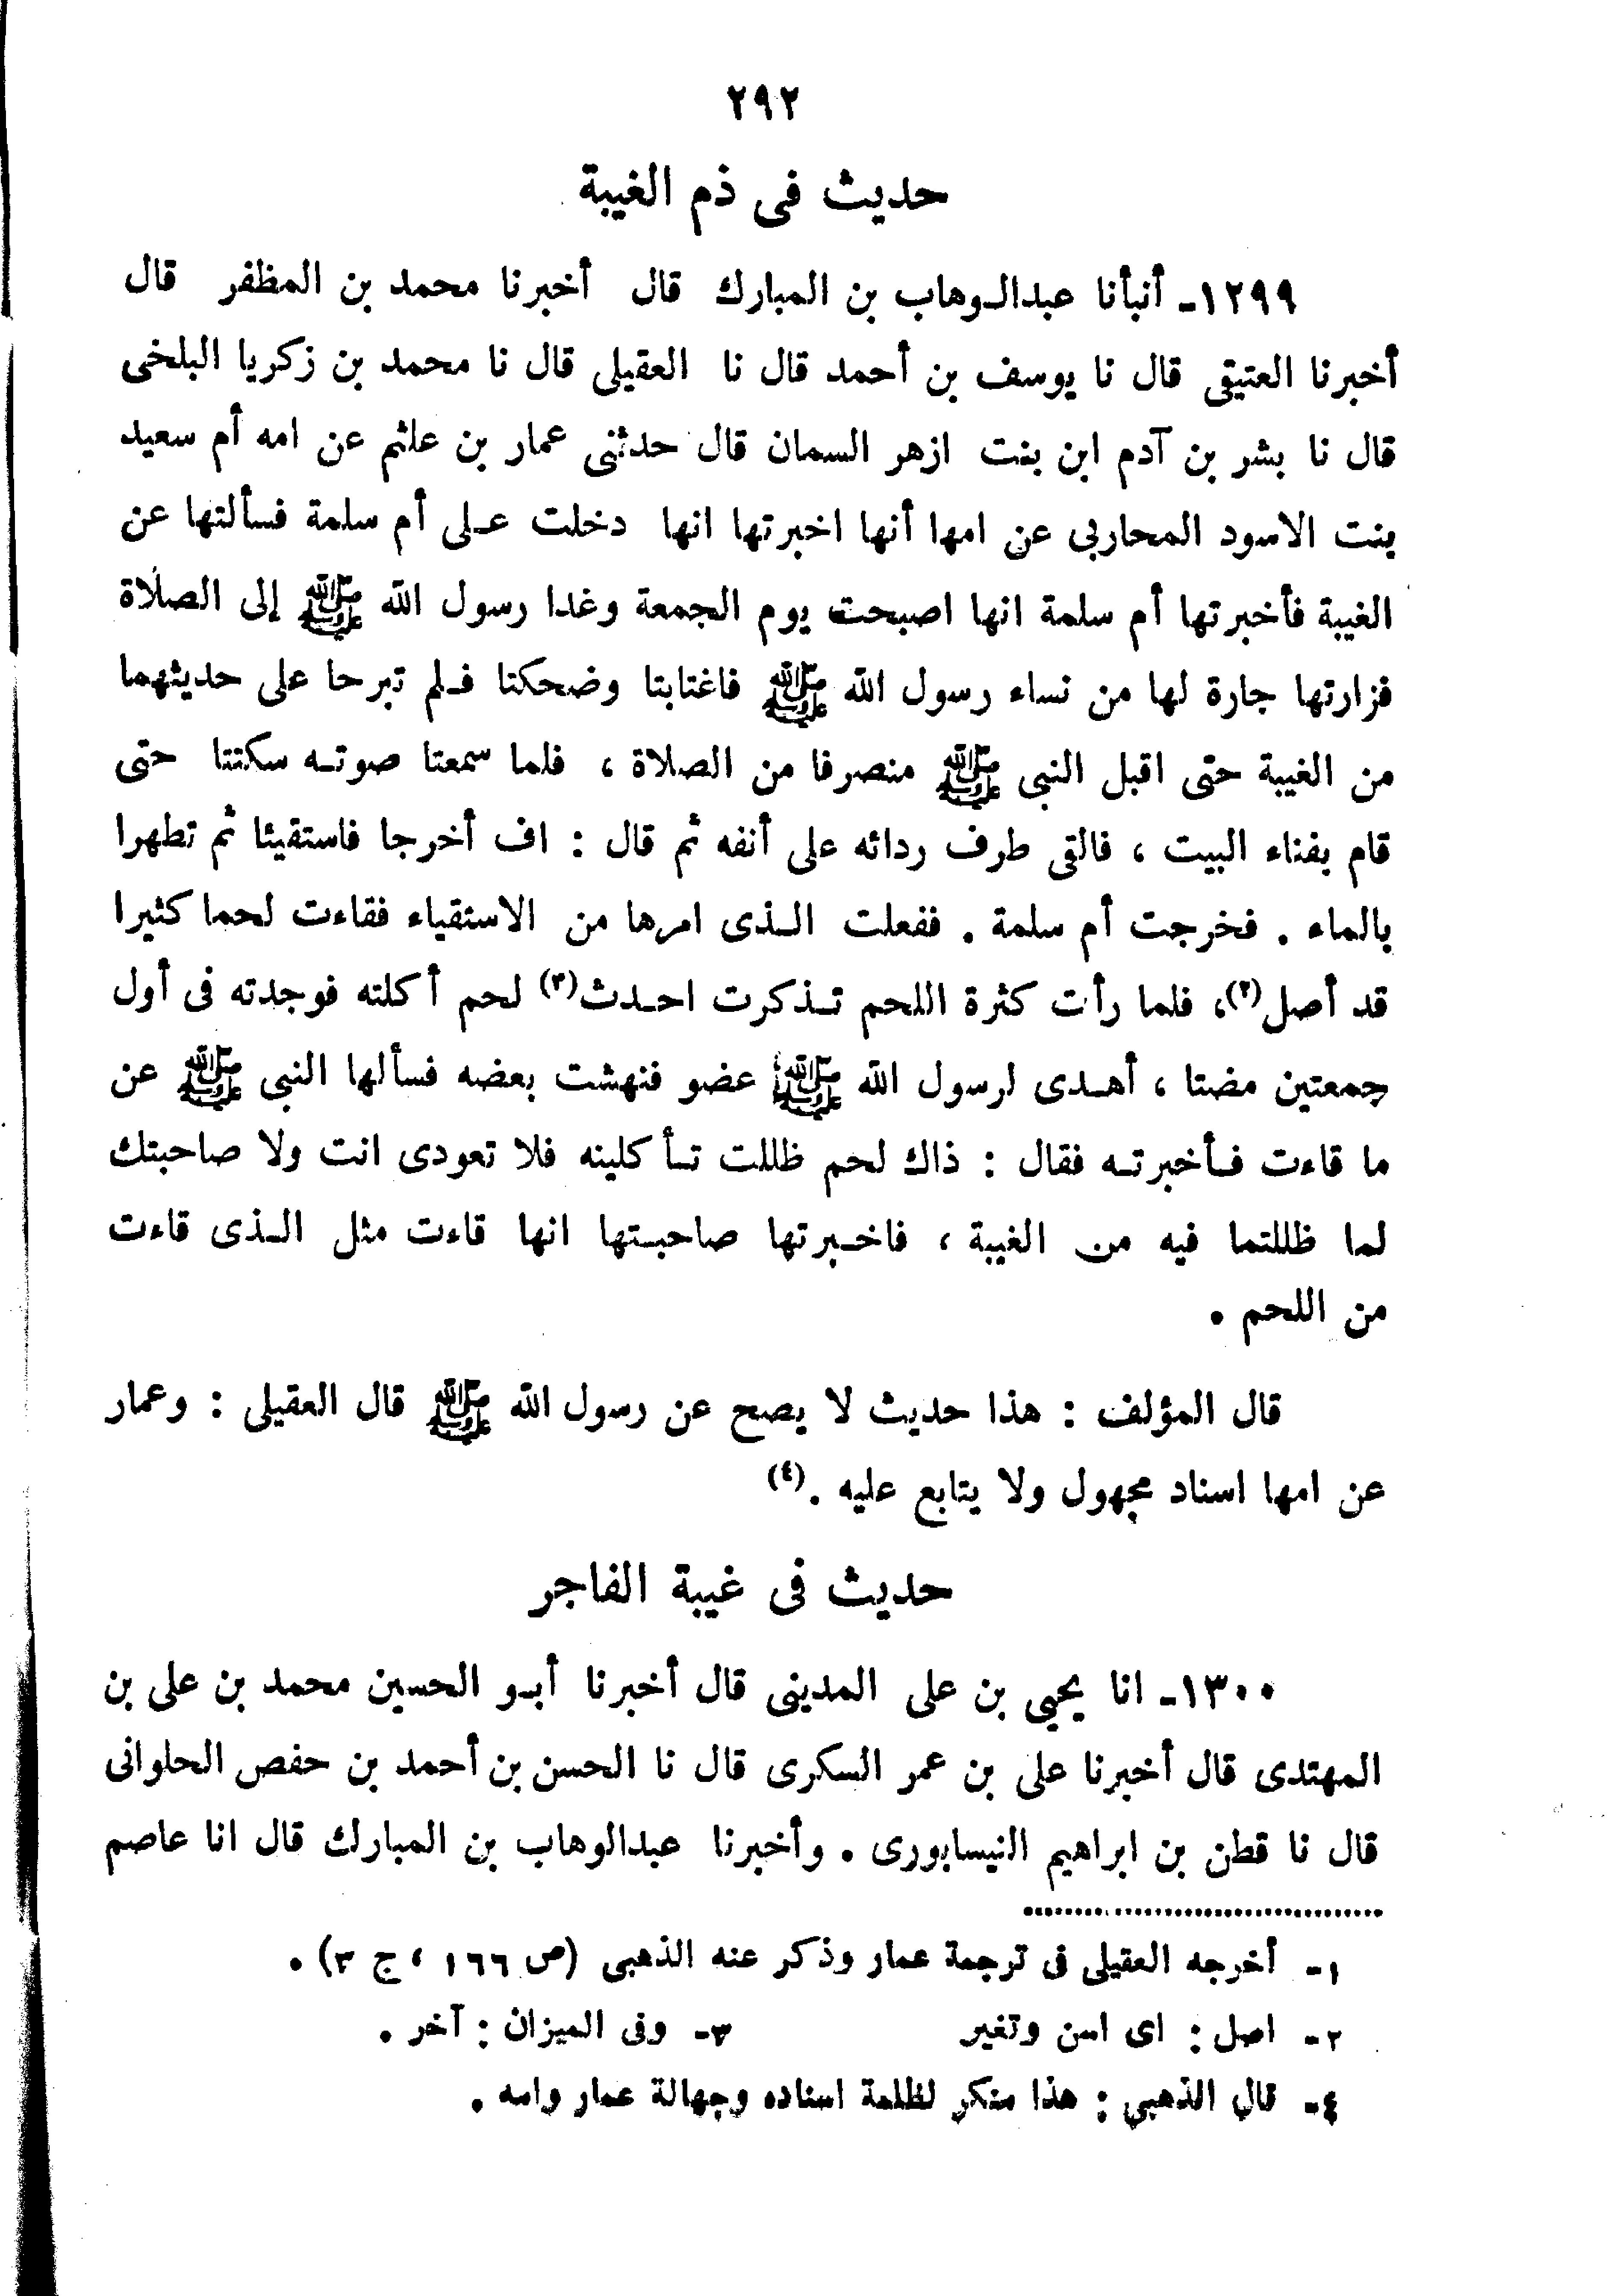 ٢٩٢
حديث فى ذم الغيبة
١٢٩٩ـ أنبأنا عبدالـوهاب بن المبارك قال أخبرنا محمد بن المظفر قال
أخبرنا العتيقى قال نا يوسف بن أحمد قال نا العقيلى قال نا محمد بن زكريا البلخى
قال نا بشر بن آدم ابن بنت ازهر السمان قال حدثنى عمار بن علثم عن امه أم سعيد
بنت الاسود المحاربى عن امها أنها اخبرتها انها دخلت عـلى أم سلمة فسألتها عن
الغيبة فأخبرتها أم سلمة انها اصبحت يوم الجمعة وغدا رسول الله ﷺ إلى الصلاة
فزارتها جارة لها من نساء رسول الله ﷺ فاغتابتا وضحكتا فـلم تبرحا على حديثهما
من الغيبة حتى اقبل النبى ﷺ منصرفا من الصلاة ، فلما سمعتا صوتـه سكتتا حتى
قام بفناء البيت ، فالقى طرف ردائه على أنفه ثم قال : اف أخرجا فاستقيئا ثم تطهرا
بالماء . فخرجت أم سلمة . ففعلت الـذى امرها من الاستقياء فقاءت لحما كثيرا
قد أصل(٢)، فلما رأت كثرة اللحم تـذكرت احـدث(٣) لحم أكلته فوجدته فى أول
جمعتين مضتا ، أهـدى لرسول الله ﷺ عضو فنهشت بعضه فسألها النبى ﷺ عن
ما قاءت فـأخبرتـه فقال : ذاك لحم ظللت تـأكلينه فلا تعودى انت ولا صاحبتك
لما ظللتما فيه من الغيبة ، فاخـبرتها صاحبـتها انها قاءت مثل الـذى قاءت
من اللحم .
قال المؤلف : هذا حديث لا يصح عن رسول الله ﷺ قال العقيلى : وعمار
عن امها اسناد مجهول ولا يتابع عليه .(٤)
حديث فى غيبة الفاجر
١٣٠٠ـ انا يحيى بن على المدينى قال أخبرنا أبـو الحسين محمد بن على بن
المهتدى قال أخبرنا على بن عمر السكرى قال نا الحسن بن أحمد بن حفص الحلوانى
قال نا قطن بن ابراهيم النيسابورى . وأخبرنا عبدالوهاب بن المبارك قال انا عاصم
١ـ أخرجه العقيلى فى ترجمة عمار وذكر عنه الذهبى (ص ١٦٦ ، ج ٣) .
٢ـ اصل : اى اسن وتغير ٣ـ وفى الميزان : آخر .
٤ـ قال الذهبى : هذا منكر لظلمة اسناده وجهالة عمار وامه .